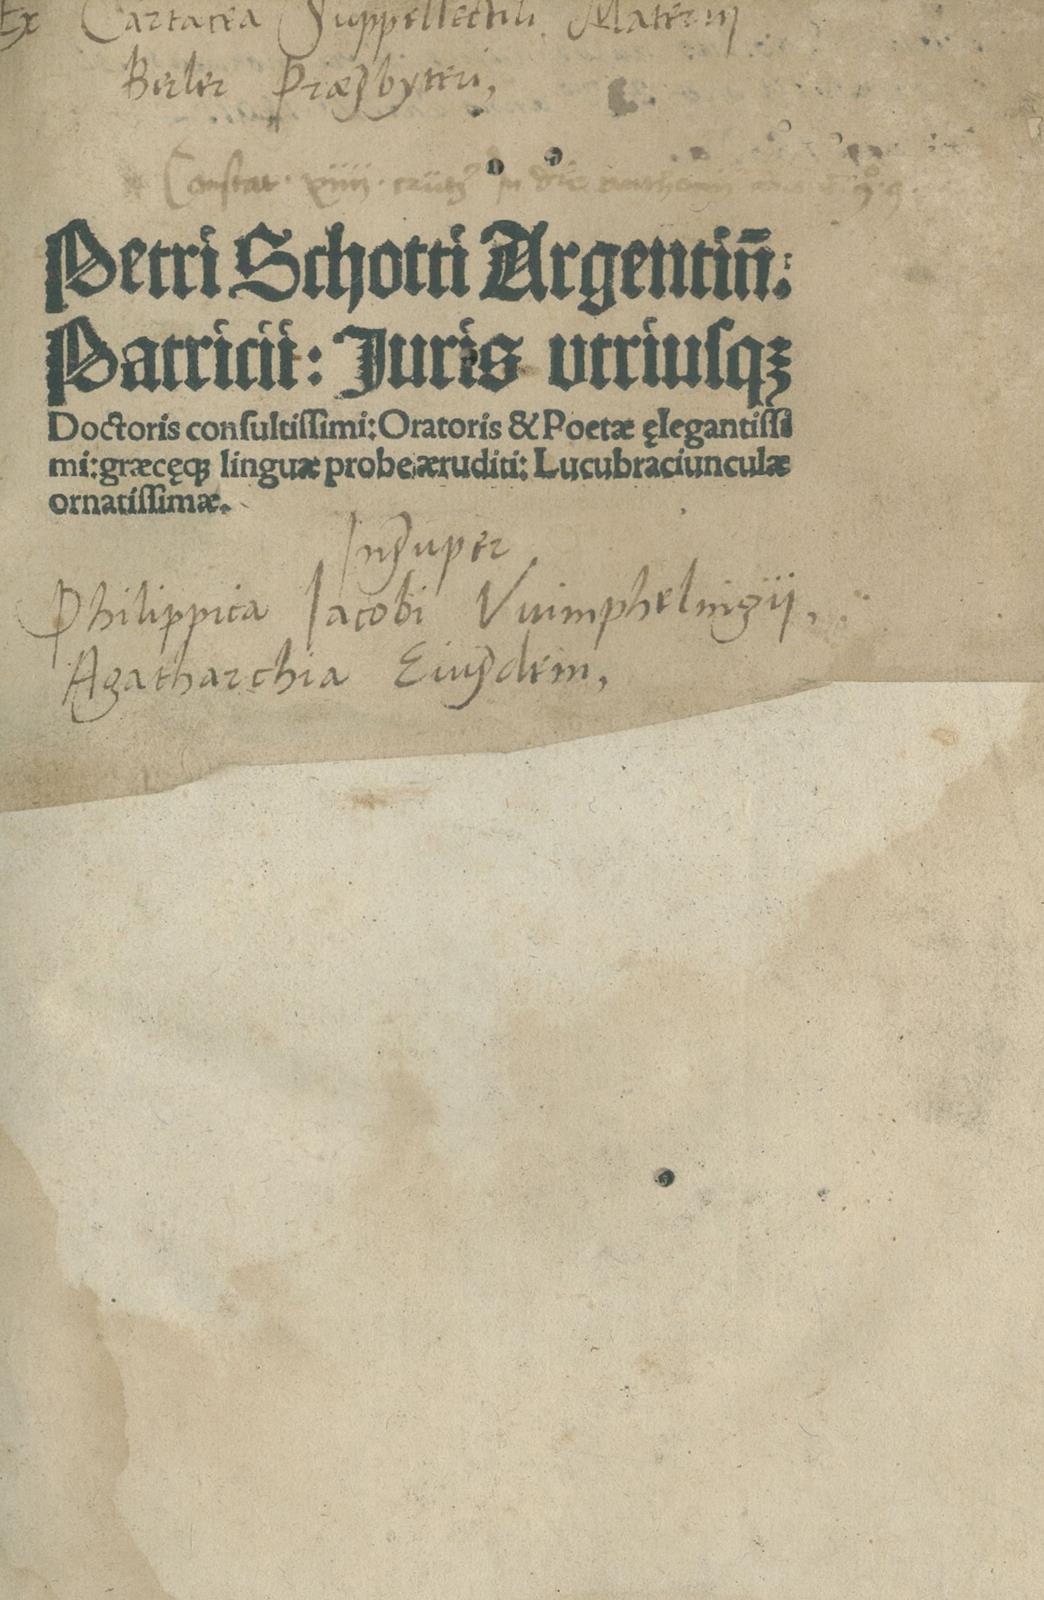 Ex Cartacea Suppellectili Materni
Berler Præsbyteri,
Constat · xiiii · crütz in die anthonii
Petri Schotti Argentin̄.
Patricii: Juris vtriuſqꝫ
Doctoris conſultiſſimi: Oratoris & Poetæ ęlegantiſſi
mi: græcęqꝫ linguæ probe æruditi: Lucubraciunculæ
ornatiſſimæ.
Inſuper
Philippica Iacobi Vuimphelingij,
Agatharchia Eiuſdem,